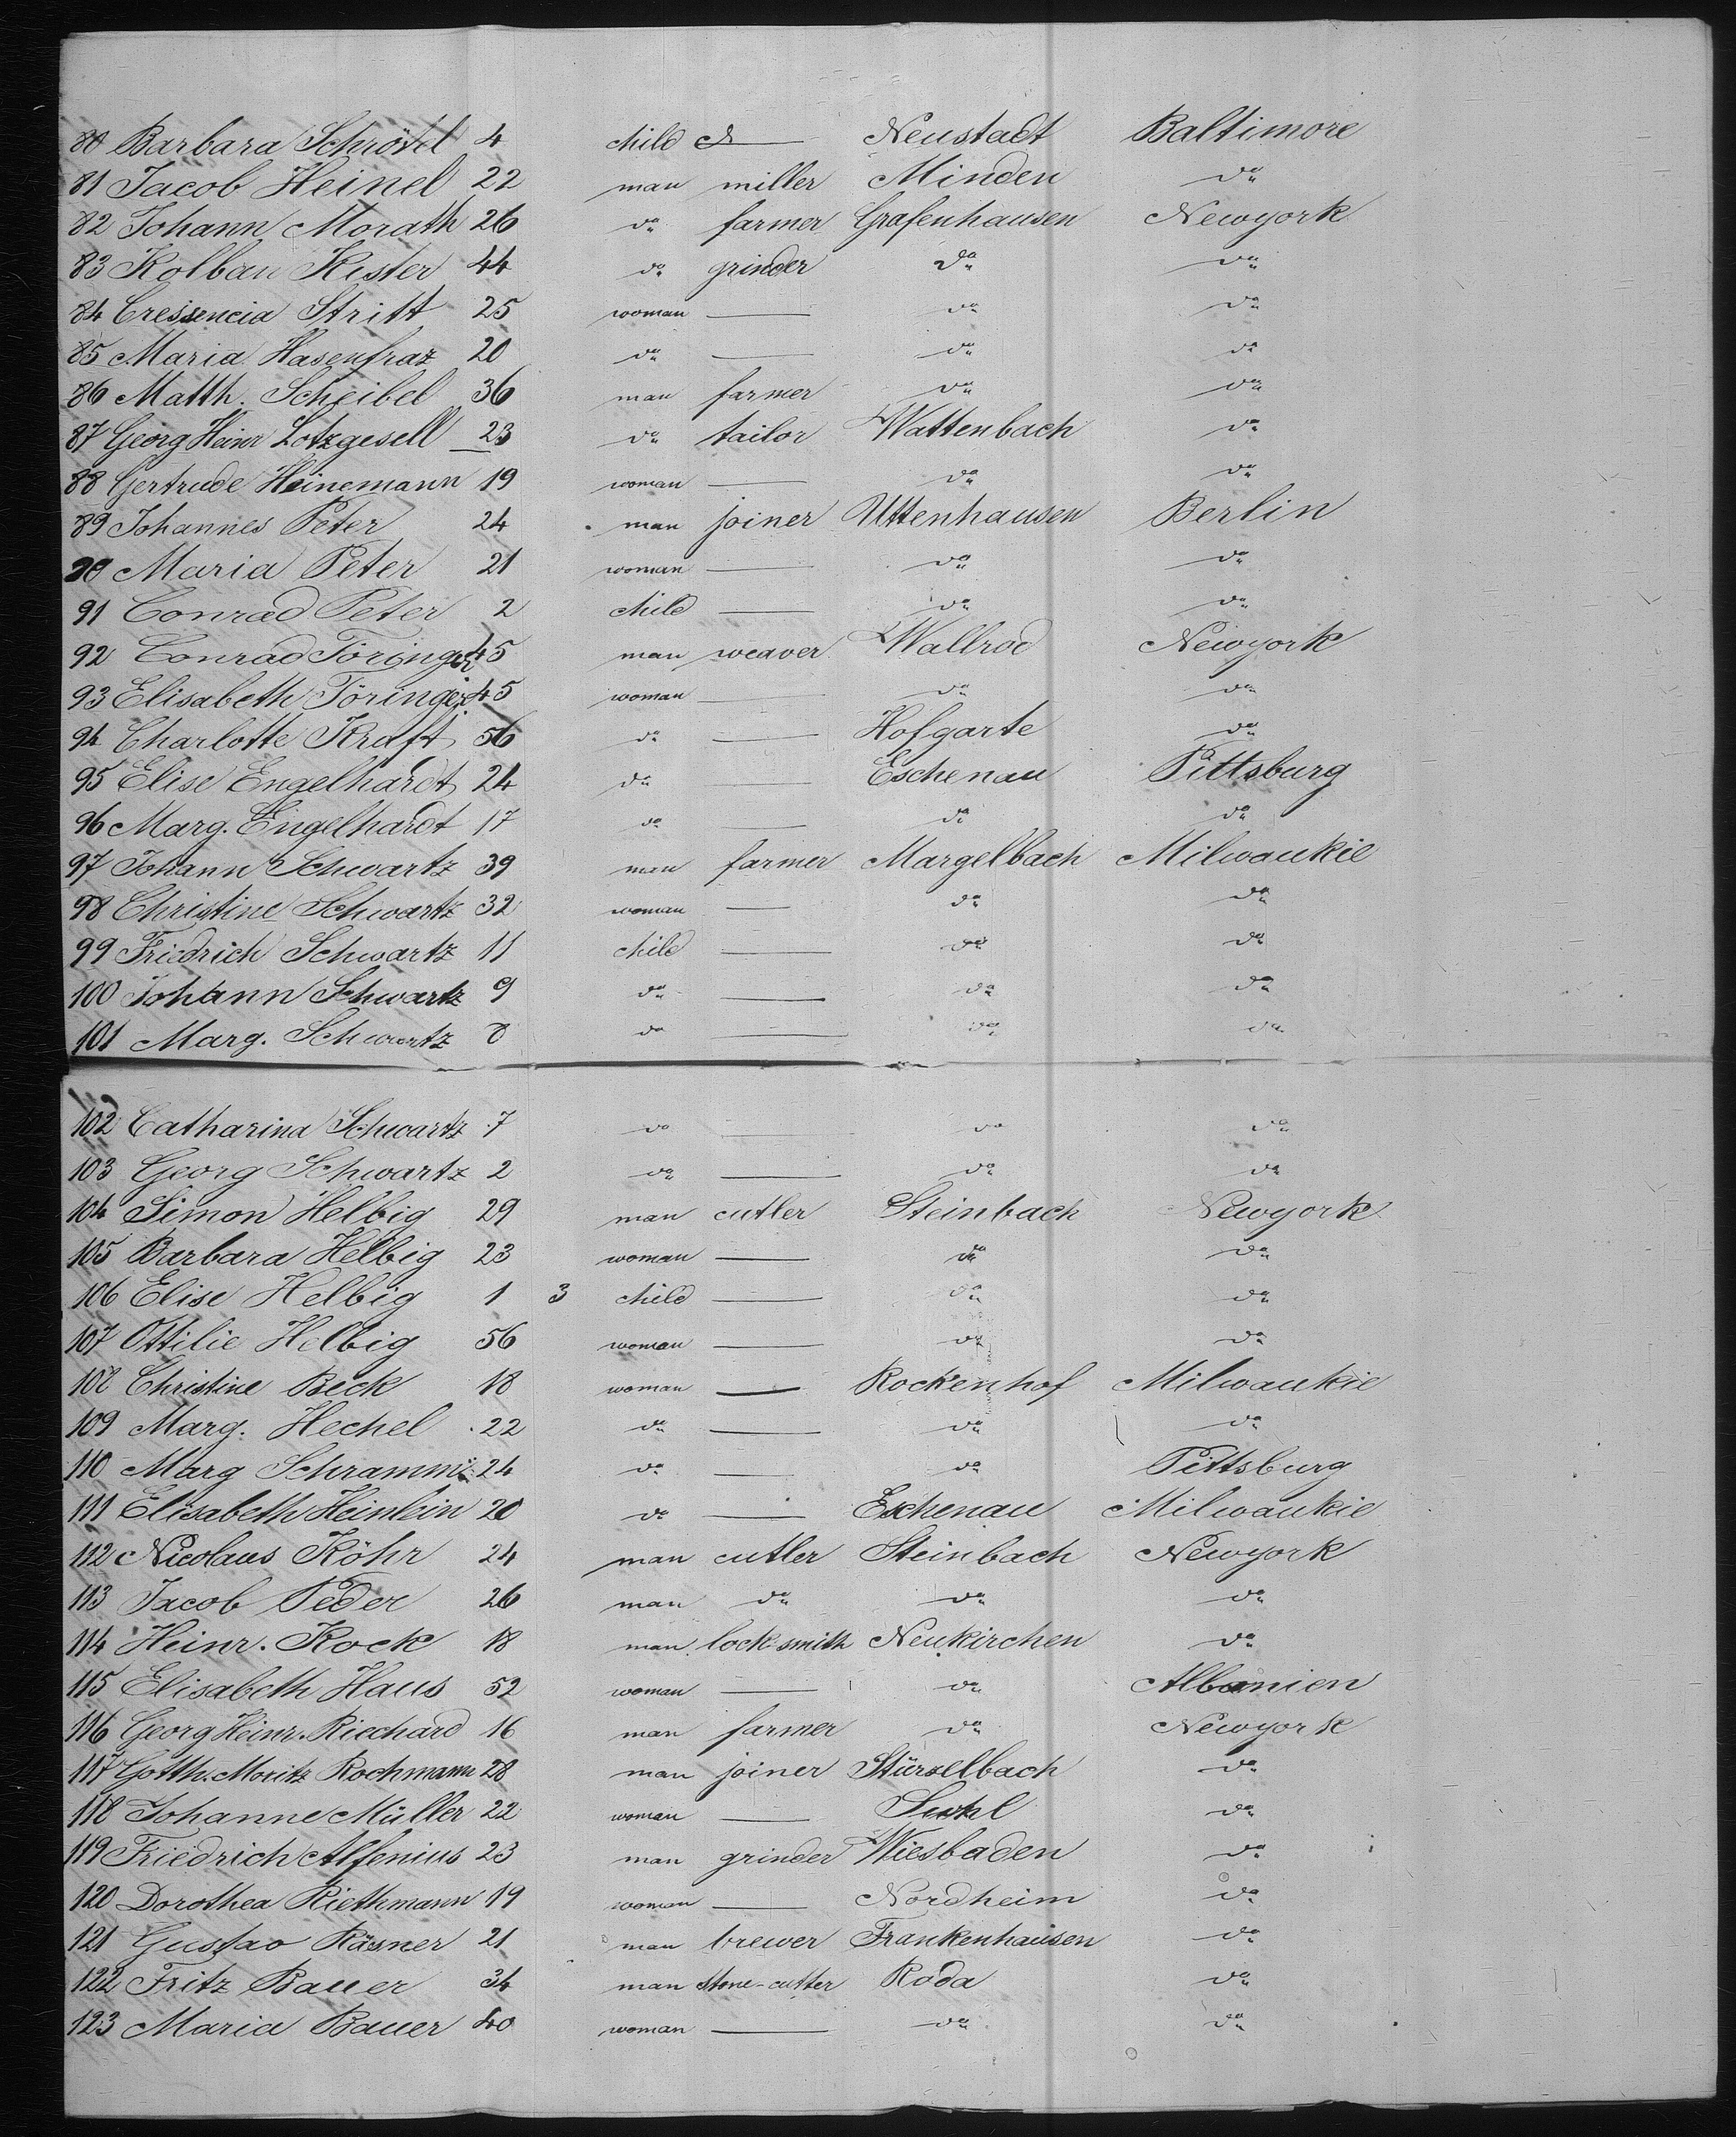 80 Barbara Schrötel 4 child d Neustadt Baltimore
81 Jacob Heinel 22 man miller Minden do
82 Johann Morath 26 do farmer Grafenhausen Newyork
83 Kolban Kister 44 do grinder do do
84 Cressencia Stritt 25 woman — do do
85 Maria Hasenfraz 20 do — do do
86 Matth. Scheibel 36 man farmer do do
87 Georg Heinr Lotzgesell 23 do tailor Wattenbach do
88 Gertrude Heinemann 19 woman — do do
89 Johannes Peter 24 man joiner Uttenhausen Berlin
90 Maria Peter 21 woman — do do
91 Conrad Peter 2 child — do do
92 Conrad Töringer 45 man weaver Wallrod Newyork
93 Elisabeth Töringer 45 woman — do do
94 Charlotte Kraft 56 do — Hofgarte do
95 Elise Engelhardt 24 do — Eschenau Pittsburg
96 Marg. Engelhardt 17 do — do do
97 Johann Schwartz 39 man farmer Margelbach Milwaukie
98 Christine Schwartz 32 woman — do do
99 Friedrich Schwartz 11 child — do do
100 Johann Schwartz 9 do — do do
101 Marg. Schwartz 8 do — do do
102 Catharina Schwartz 7 do — do do
103 Georg Schwartz 2 do — do do
104 Simon Helbig 29 man cutler Steinbach Newyork
105 Barbara Helbig 23 woman — do do
106 Elise Helbig 1 3 child — do do
107 Ottilie Helbig 56 woman — do do
108 Christine Beck 18 woman — Rockenhof Milwaukie
109 Marg. Hechel 22 do — do do
110 Marg Schramm 24 do — do Pittsburg
111 Elisabeth Heinlein 20 do — Eschenau Milwaukie
112 Nicolaus Köhr 24 man cutler Steinbach Newyork
113 Jacob Peder 26 man do do do
114 Heinr. Kock 18 man lock smith Neukirchen do
115 Elisabeth Haus 52 woman — do Albanien
116 Georg Heinr. Riechard 16 man farmer do Newyork
117 Gotth. Moritz Rochmann 28 man joiner Stürzelbach do
118 Johanne Müller 22 woman — Suhl do
119 Friedrich Alfenius 23 man grinder Wiesbaden do
120 Dorothea Riethemann 19 woman — Nordheim do
121 Gustav Räsner 21 man brewer Frankenhausen do
122 Fritz Bauer 34 man stone-cutter Roda do
123 Maria Bauer 40 woman — do do